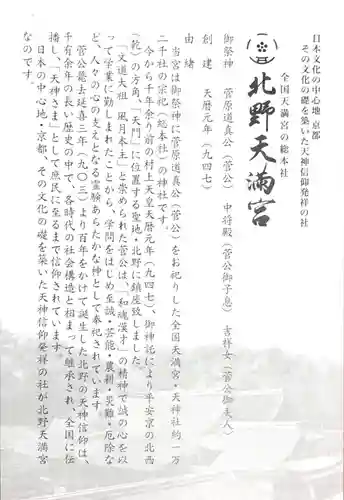 日本文化の中心地 京都
その文化の礎を築いた天神信仰発祥の社
全国天満宮の総本社
北野天満宮
御祭神　菅原道真公（菅公）　中将殿（菅公御子息）　吉祥女（菅公御夫人）
創建　天暦元年（九四七）
由緒
当宮は御祭神に菅原道真公（菅公）をお祀りした全国天満宮・天神社約一万
二千社の宗祀（総本社）の神社です。
今から千年余り前の村上天皇天暦元年（九四七）、御神託により平安京の北西
（乾）の方角、「天門」に位置する聖地・北野に鎮座致しました。
「文道大祖　風月本主」と崇められた菅公は、「和魂漢才」の精神で誠の心を以
って学業に勤しまれたことから、学問をはじめ至誠・芸能・農耕・災難・厄除な
ど、人々の心の支えとなる霊験あらたかな神として奉祀されています。
菅公薨去延喜三年（九〇三）より百年をかけて誕生した北野の天神信仰は、
千有余年の長い歴史の中で、各時代の社会構造と相まって継承され、全国に伝
播し、「天神さま」として庶民に至るまで信仰されています。
日本の中心地・京都、その文化の礎を築いた天神信仰発祥の社が北野天満宮
なのです。